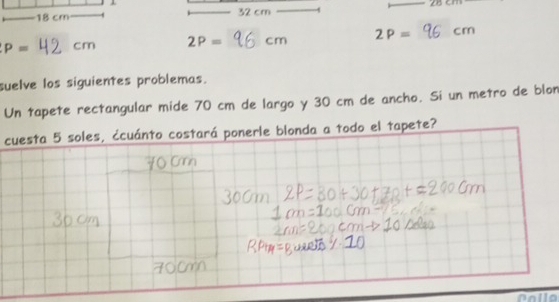 18 cm
32 cm
28 cm
2P = 42 cm
2P = 96 cm
2P = 96 cm
suelve los siguientes problemas.
Un tapete rectangular mide 70 cm de largo y 30 cm de ancho. Si un metro de blon
cuesta 5 soles, ¿cuánto costará ponerle blonda a todo el tapete?
70 cm
30 cm
30cm
2P=30+30+70+=200cm
1 m=100 cm=
2m=200 cm→10 soles
Rpta=Cuesta S/ 10
70cm